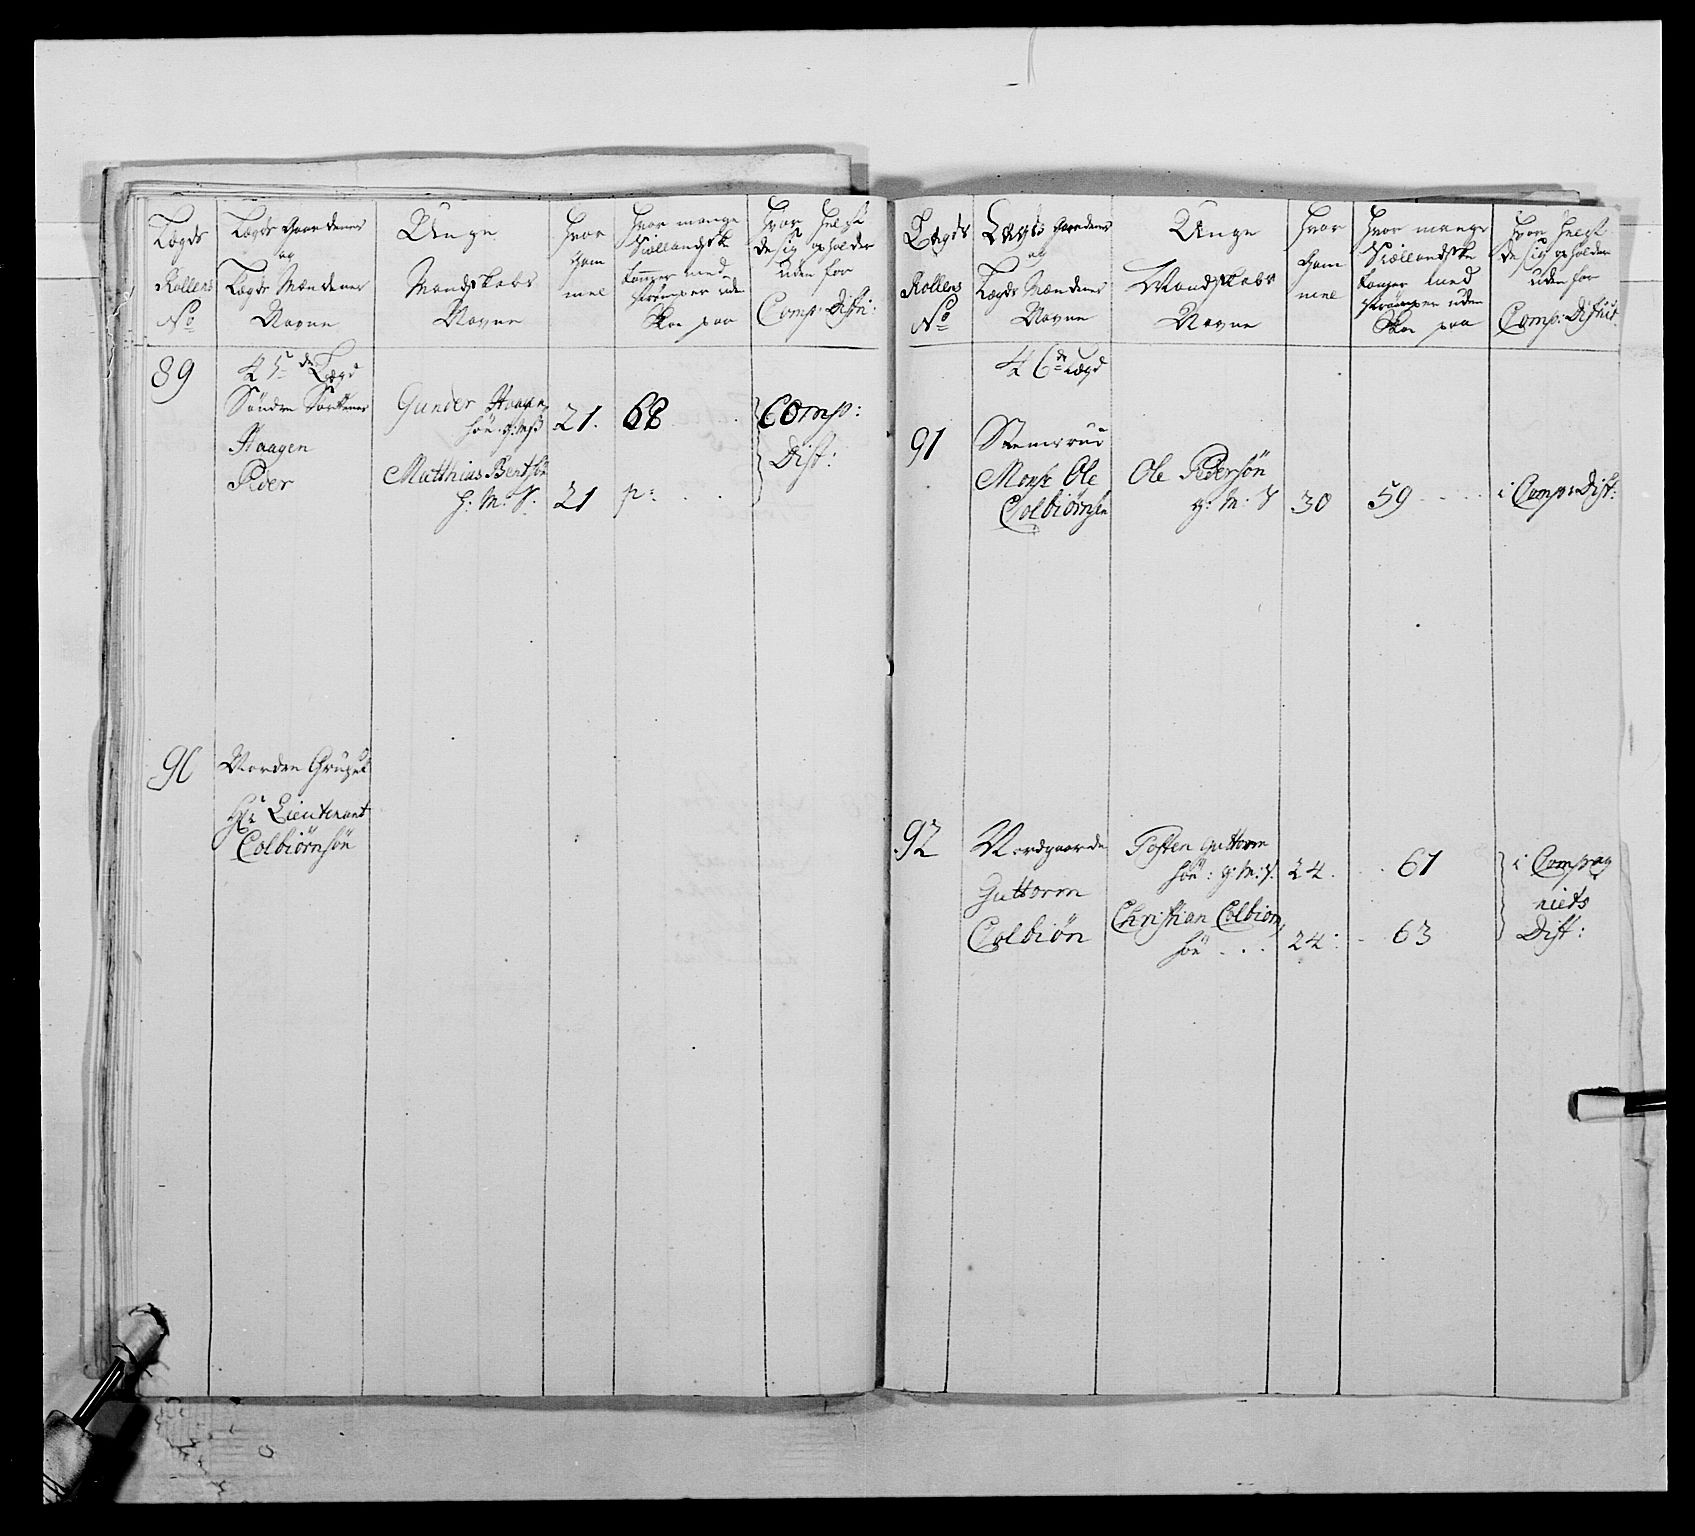 Lægds
Rollens
No
Lægds Gaardenes
og
Lægds Mændenes
Navne
Unge
Mandskabs
Navne
Hvor
Gam
mel
Hvor mange
Siellandske
Tommer med
Strømper uden
Skoe paa
Hvor helst
de sig opholder
uden for
Comp: Distri:
89
45de Lægd
Søndre
Haagen
Peder
Gunder Haagen
søn g: M S
21.
68
Comp:
Dist:
Matthias Bentsøn
g: M: S:
21
90
Nordre
Hr Lieutenant
Colbiørnsøn
Lægds
Rollens
No
Lægds Gaardenes
og
Lægds Mændenes
Navne
Unge
Mandskabs
Navne
Hvor
Gam
mel
Hvor mange
Siellandske
Tommer med
Strømper uden
Skoe paa
Hvor helst
de sig opholder
uden for
Comp: District
46de Lægd
91
Stensrud
Mons: Ole
Colbiørnsen
Ole Pedersøn
g: M: S
30
59
i Comp: Dist:
92
Nordgaarde
Guttorm
Colbiøn
Tosten Guttorm
søn: g: M: S.
24.
61
i Compag
niets
Dist:
Christian Colbiørn
søn
24:
63